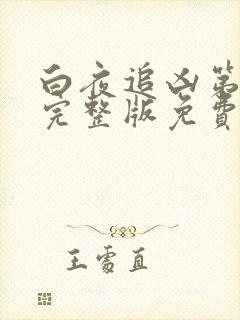 白夜追凶第
完整版免費
王雩直